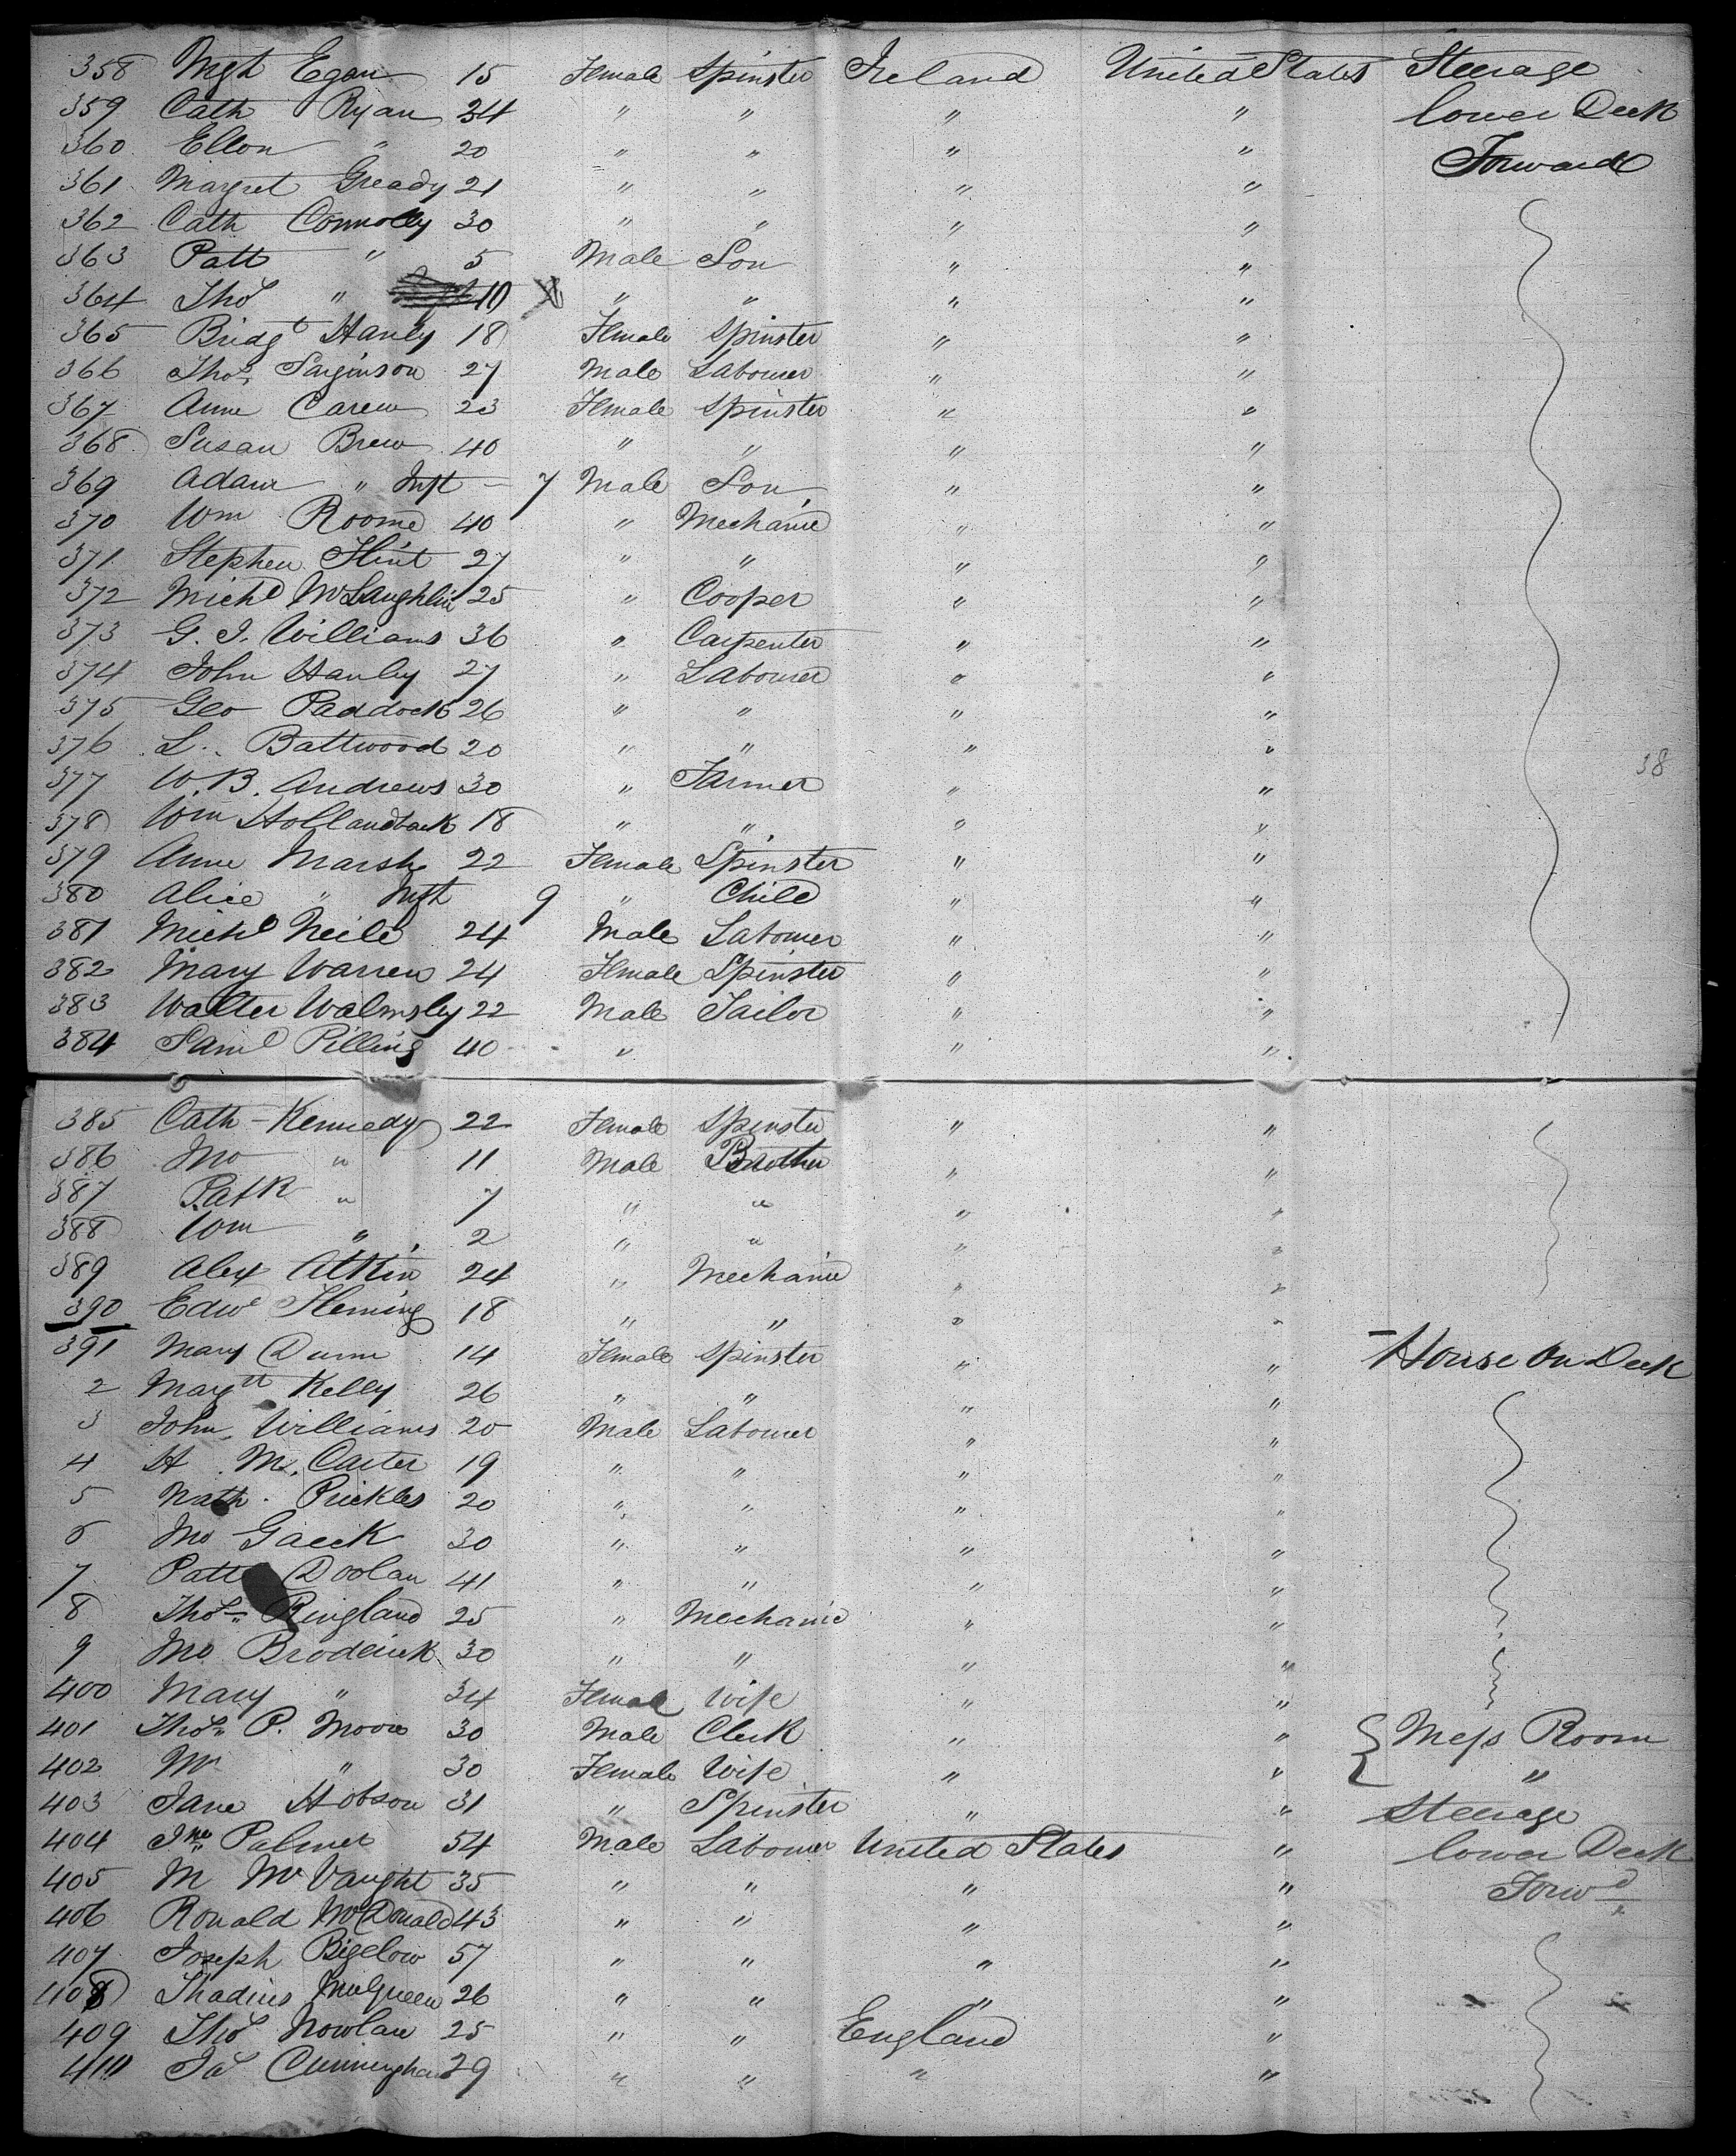 358 Mgt Egan 15 Female Spinster Ireland United States Steerage
359 Cath Ryan 24 " " " " lower Deck
360 Ellen " 20 " " " " Forward
361 Margret Gready 21 " " " "
362 Cath Connolly 30 " " " "
363 Patt " 5 Male Son " "
364 Thos " 10 " " " "
365 Bridgt Hanly 18 Female Spinster " "
366 Thos Sarginson 27 Male Labourer " "
367 Anne Carew 23 Female Spinster " "
368 Susan Brew 40 " " " "
369 Adam " Inft - 7 Male Son " "
370 Wm Roome 40 " Mechanic " "
371 Stephen Flint 27 " " " "
372 Michl McLaughlin 25 " Cooper " "
373 G. J. Williams 36 " Carpenter " "
374 John Hanley 27 " Labourer " "
375 Geo Paddock 26 " " " "
376 L. Battwood 20 " " " "
377 W. B. Andrews 30 " Farmer " " 38
378 Wm Hollandback 18 " " " "
379 Anne Marsh 22 Female Spinster " "
380 Alice " Inft 9 " Child " "
381 Michl Neile 24 Male Labourer " "
382 Mary Warren 24 Female Spinster " "
383 Walter Walmsley 22 Male Tailor " "
384 Saml Pilling 40 " " "
385 Cath Kennedy 22 Female Spinster " "
386 Jno " 11 Male Brother " "
387 Patk " 7 " " " "
388 Wm " 2 " " " "
389 Alex Atkin 24 " Mechanic " "
390 Edwd Fleming 18 " " " "
391 Mary Dunn 14 Female Spinster " " House On Deck
2 Margtt Kelly 26 " " " "
3 John Williams 20 Male Labourer " "
4 H. M. Carter 19 " " " "
5 Nath. Prickles 20 " " " "
6 Jno Gaeck 30 " " " "
7 Patt Doolan 41 " " " "
8 Thos Ringland 25 " Mechanic " "
9 Jno Broderick 30 " " " "
400 Mary " 34 Female Wife " "
401 Thos P. Moore 30 Male Clerk " " Mess Room
402 Mr " 30 Female Wife " " "
403 Jane Hobson 31 " Spinster " " Steerage
404 Jno Palmer 54 Male Labourer United States " lower Deck
405 M McVaught 35 " " " " Forwd
406 Ronald McDonald 43 " " " "
407 Joseph Bigelow 57 " " " "
408 Thadius Mulqueen 26 " " " "
409 Thos Nowlan 25 " " England "
410 Jas Cunningham 29 " " " "